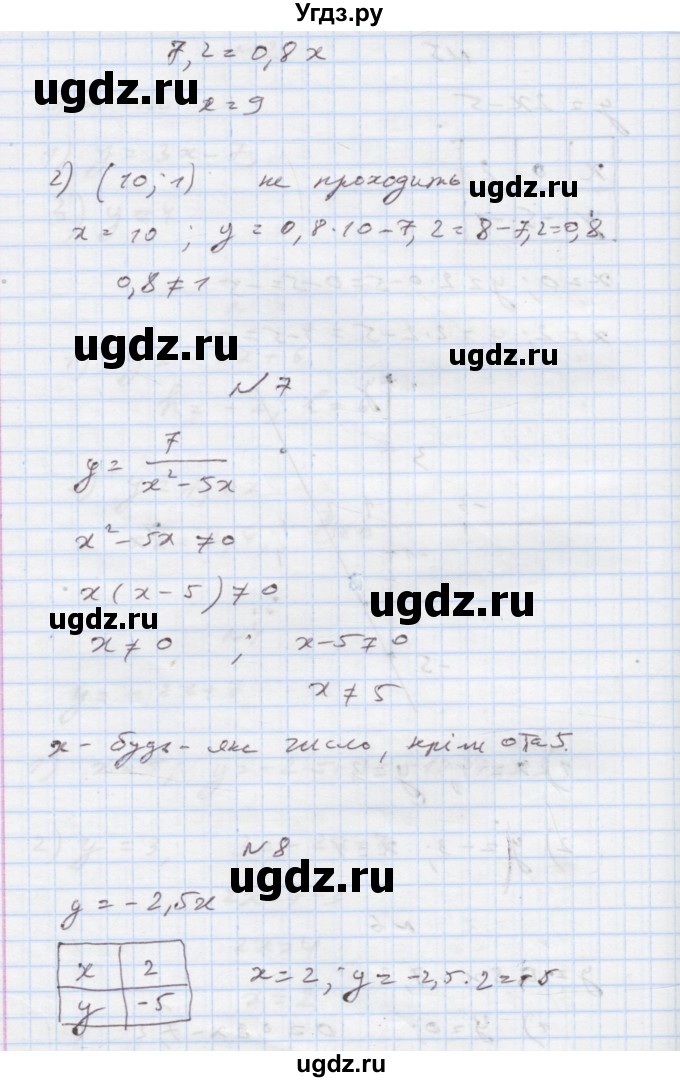 Угдз.ру
7,2 = 0,8x
ugdz.ru
x = 9
2) (10; 1) не проходить
ugdz.ru
x = 10 ; y = 0,8·10 - 7,2 = 8 - 7,2 = 0,8.
0,8 ≠ 1
ugdz.ru
ugdz.ru
№7
y = 7 / (x² - 5x)
x² - 5x ≠ 0
x(x - 5) ≠ 0
ugdz.ru
ugdz.ru
x ≠ 0 ; x - 5 ≠ 0
x ≠ 5
x - будь-яке число, крім 0 та 5.
№8
ugdz.ru
y = -2,5x
x 2
y -5
x = 2; y = -2,5·2 = -5
ugdz.ru
ugdz.ru